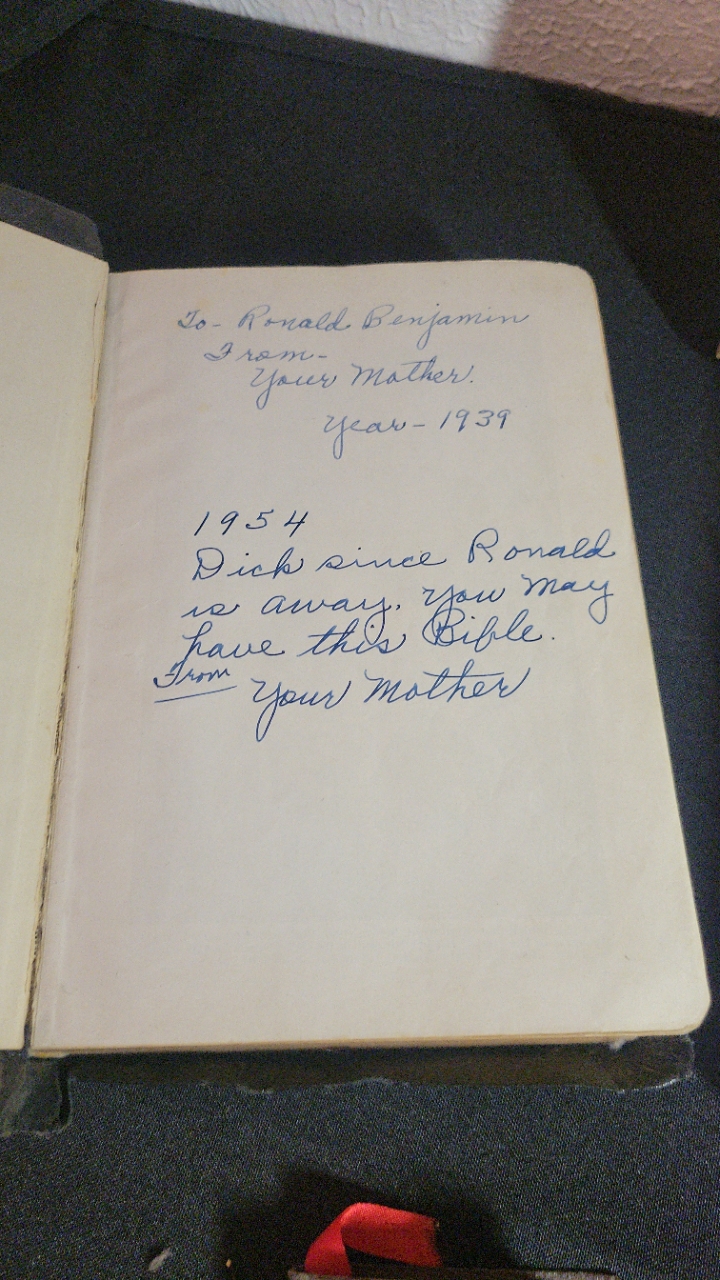 To- Ronald Benjamin
From-
Your Mother.
Year- 1939
1954
Dick since Ronald
is away. You May
have this Bible.
From Your Mother